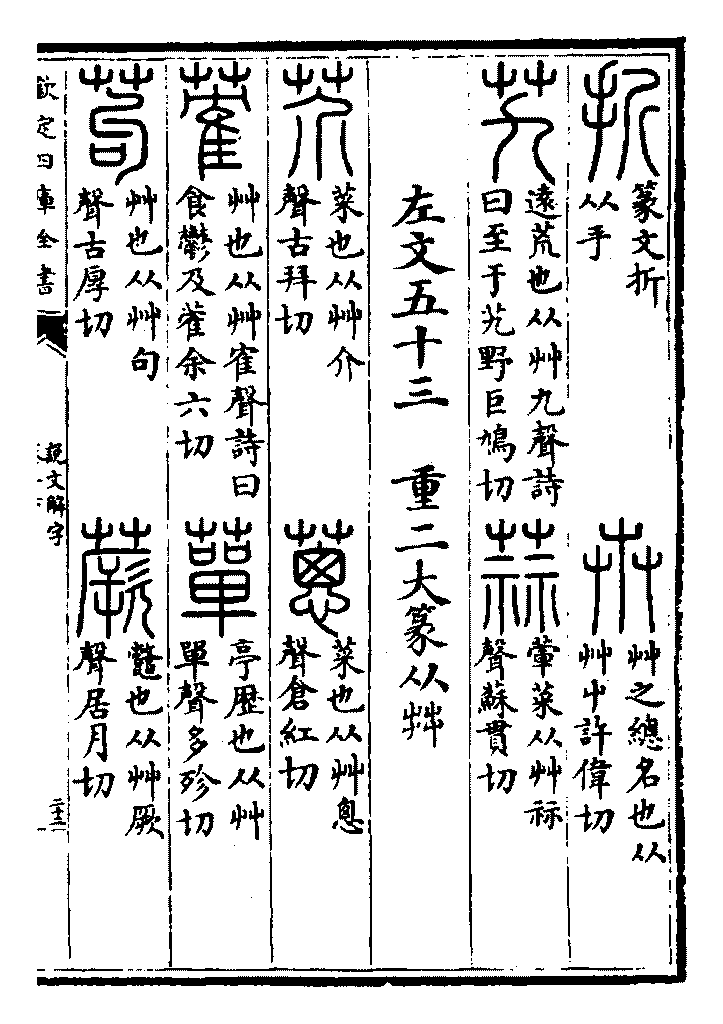 折 篆文折从手
卉 艸之總名也从艸屮許偉切
艽 遠荒也从艸九聲詩曰至于艽野巨鳩切
蒜 葷菜从艸祘聲蘇貫切
左文五十三 重二大篆从茻
芥 菜也从艸介聲古拜切
蔥 菜也从艸悤聲倉紅切
蒮 艸也从艸隺聲詩曰食鬱及蒮余六切
蕇 亭歷也从艸單聲多殄切
苟 艸也从艸句聲古厚切
蕨 虌也从艸厥聲居月切
欽定四庫全書
說文解字
二十三